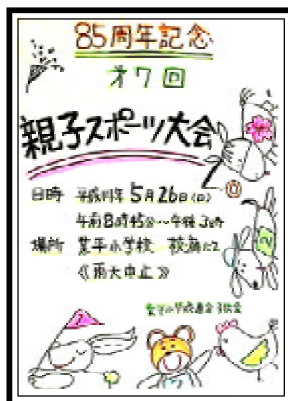 85周年記念
才7回
親子スポーツ大会
日時 平成14年 5月26日(日)
午前8時45分〜午後3時
場所 業平小学校 校庭にて
《雨天中止》